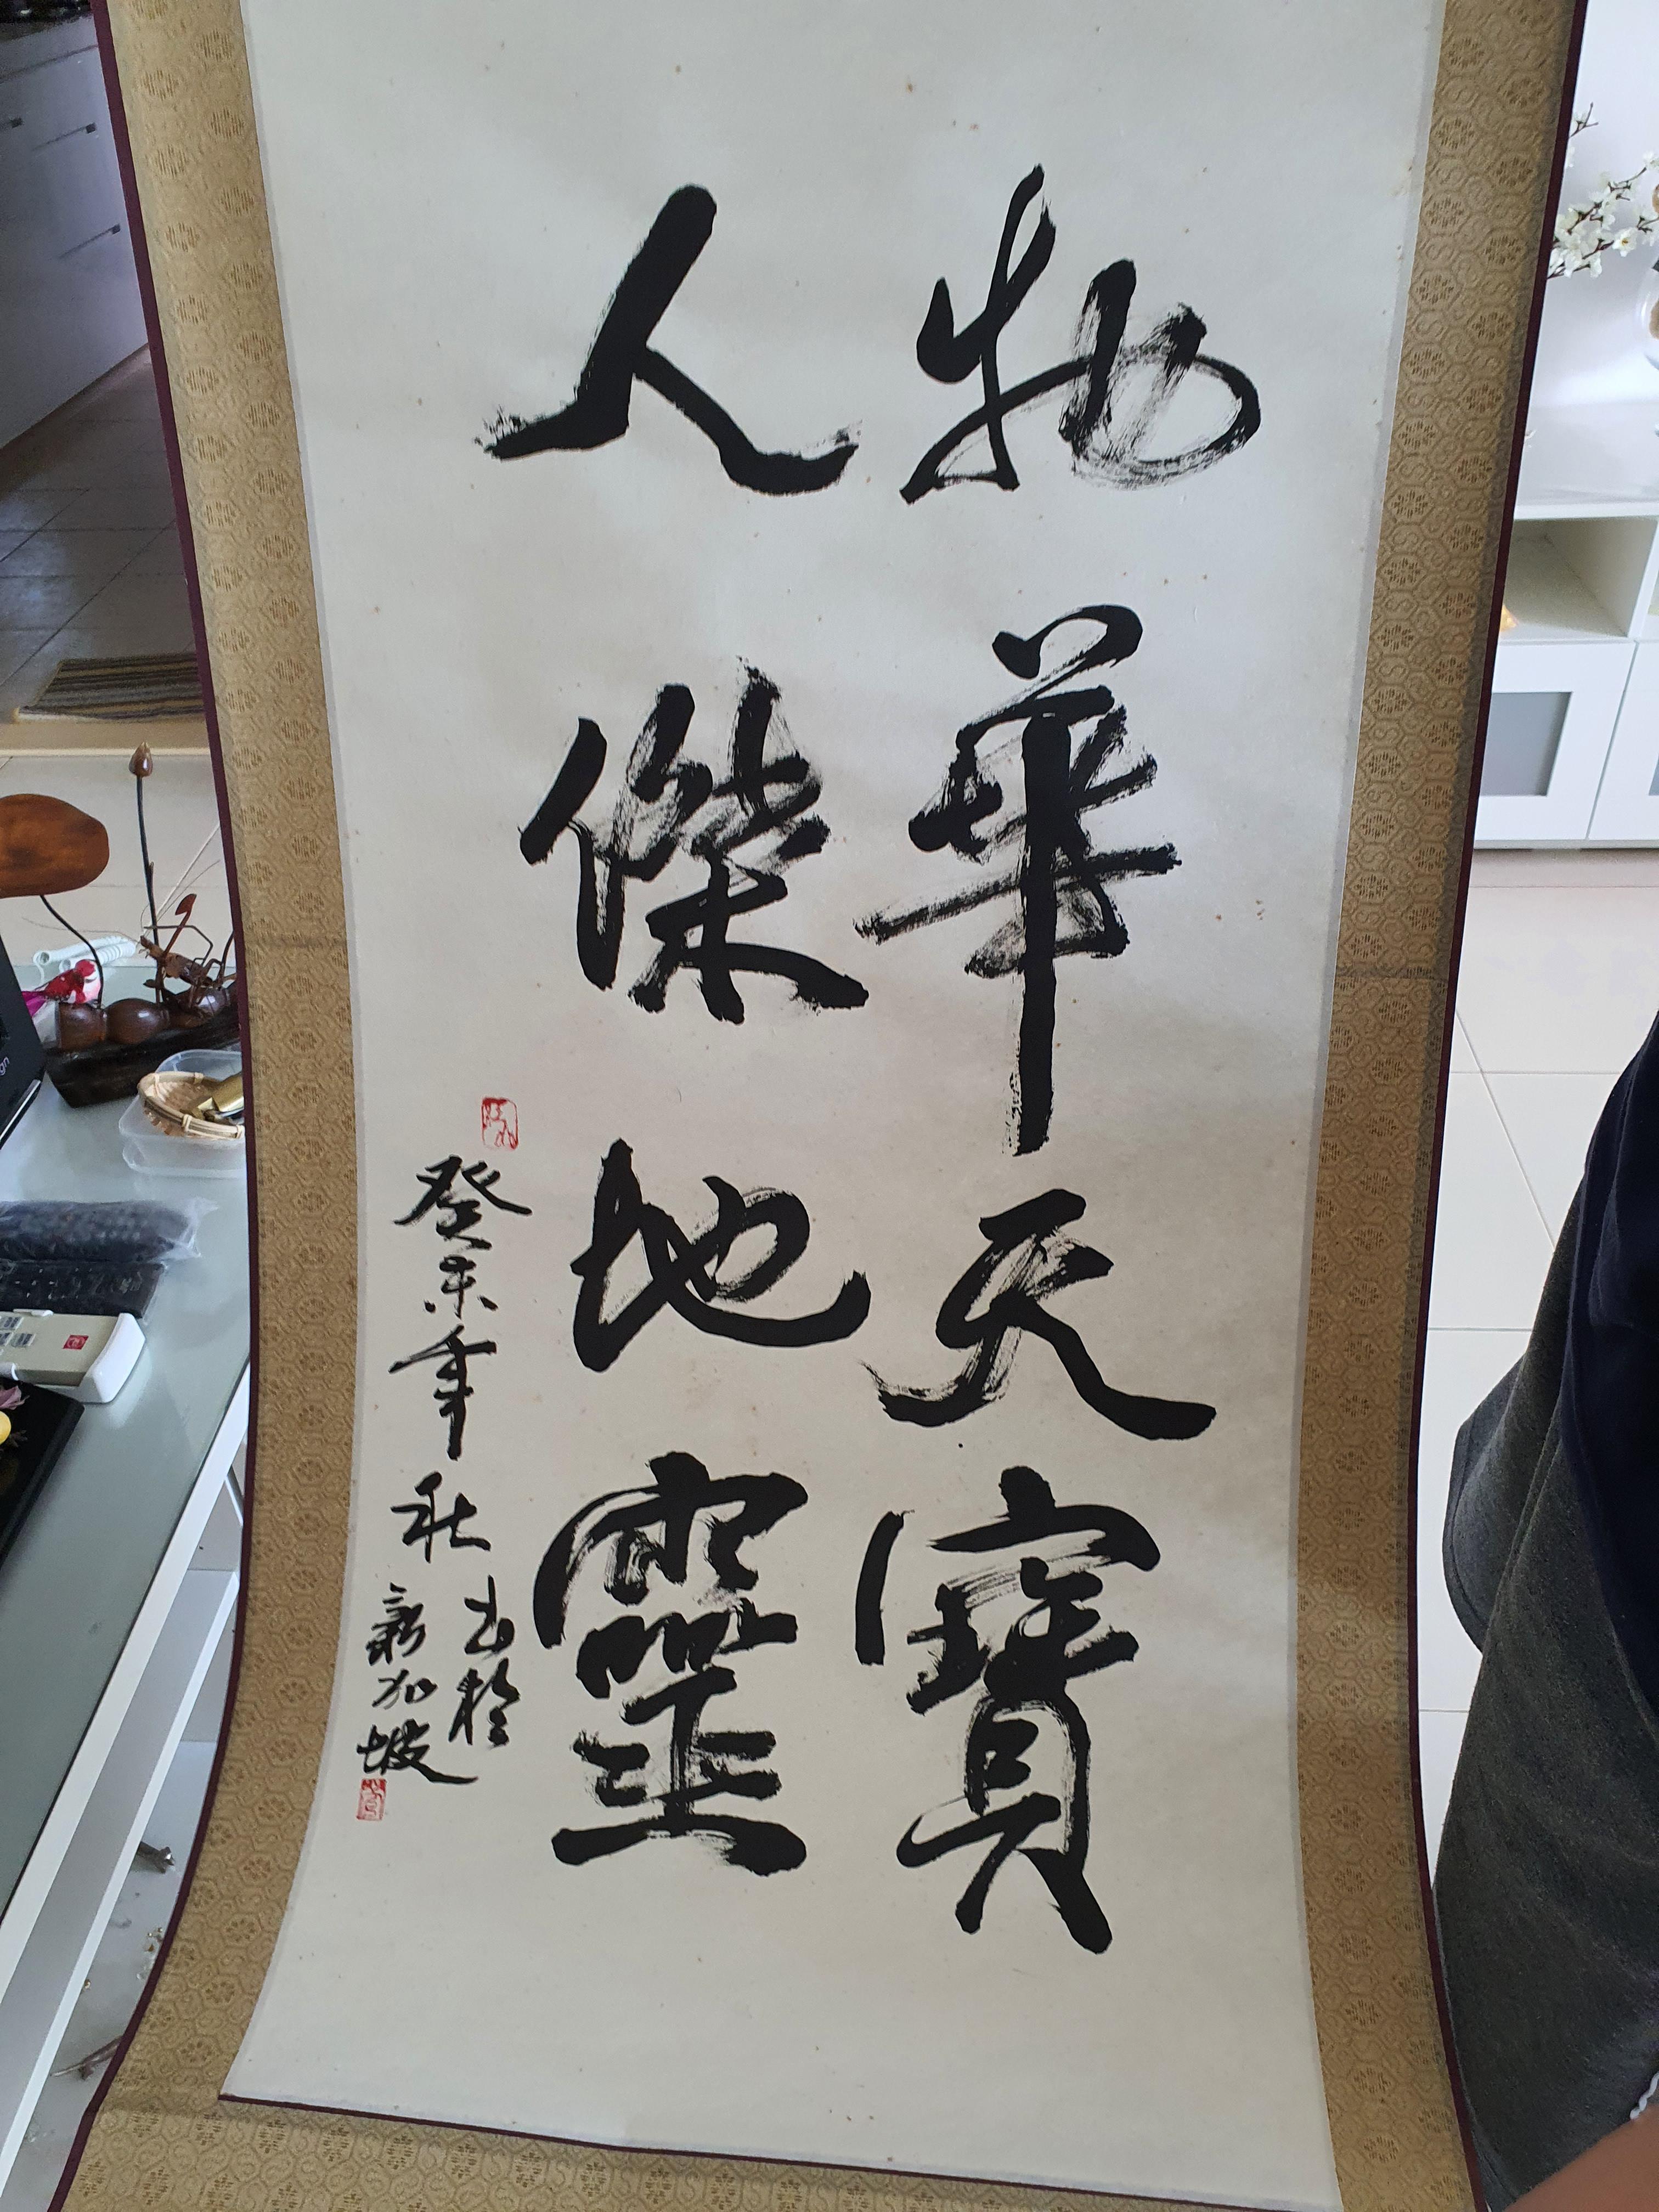 物華天寶
人傑地靈
癸未年秋
書於
新加坡